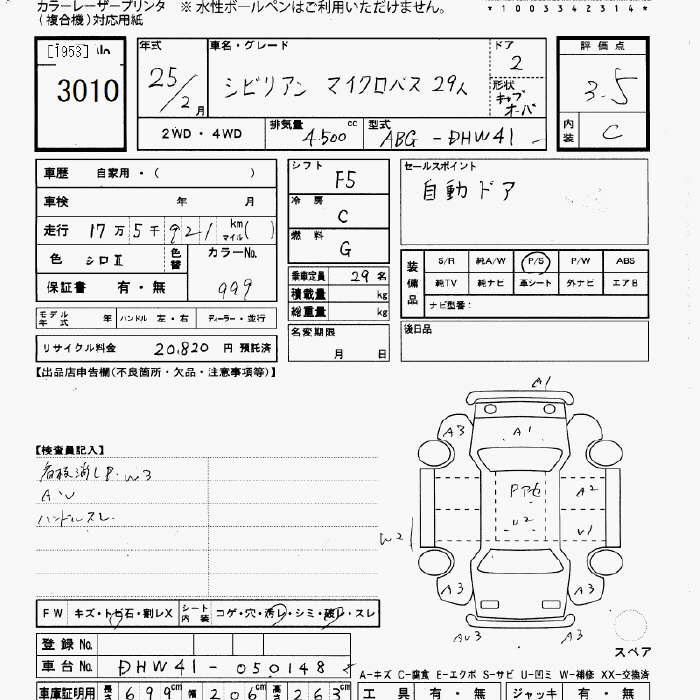 カラーレーザープリンタ ※ 水性ボールペンはご利用いただけません。
(複合機)対応用紙
*1003342314*
[1953]
3010
年式 車名・グレード ドア 評価点
25/2月 シビリアン マイクロバス 29人 2 3.5
形状 キャブオーバ
2WD・4WD 排気量 4.500 cc 型式 ABG-DHW41 内装 C
車歴 自家用・( )
車検 年 月
走行 17万5千921 km マイル( )
色 シロⅡ 色替 カラーNo. 999
保証書 有・無
シフト F5
冷房 C
燃料 G
乗車定員 29名
積載量 kg
総重量 kg
セールスポイント
自動ドア
装備品 S/R 純A/W P/S P/W ABS
純TV 純ナビ 革シート 外ナビ エアB
ナビ型番:
モデル年式 年 ハンドル 左・右 ディーラー・並行
名変期限 月 日
後日品
リサイクル料金 20,820 円 預託済
【出品店申告欄(不良箇所・欠品・注意事項等)】
A1
A3 A1
【検査員記入】
看板消しP. W3
ハンドルスレ
A2
W2 U2
A3 A3
A3
FW キズ・トビ石・割レX シート内装 コゲ・穴・汚レ・シミ・破レ・スレ
登録No.
車台No. DHW41-050148
スペア
A-キズ C-腐食 E-エクボ S-サビ U-凹ミ W-補修 XX-交換済
車庫証明用 長さ 699cm 幅 206cm 高さ 263cm
工具 有・無 ジャッキ 有・無